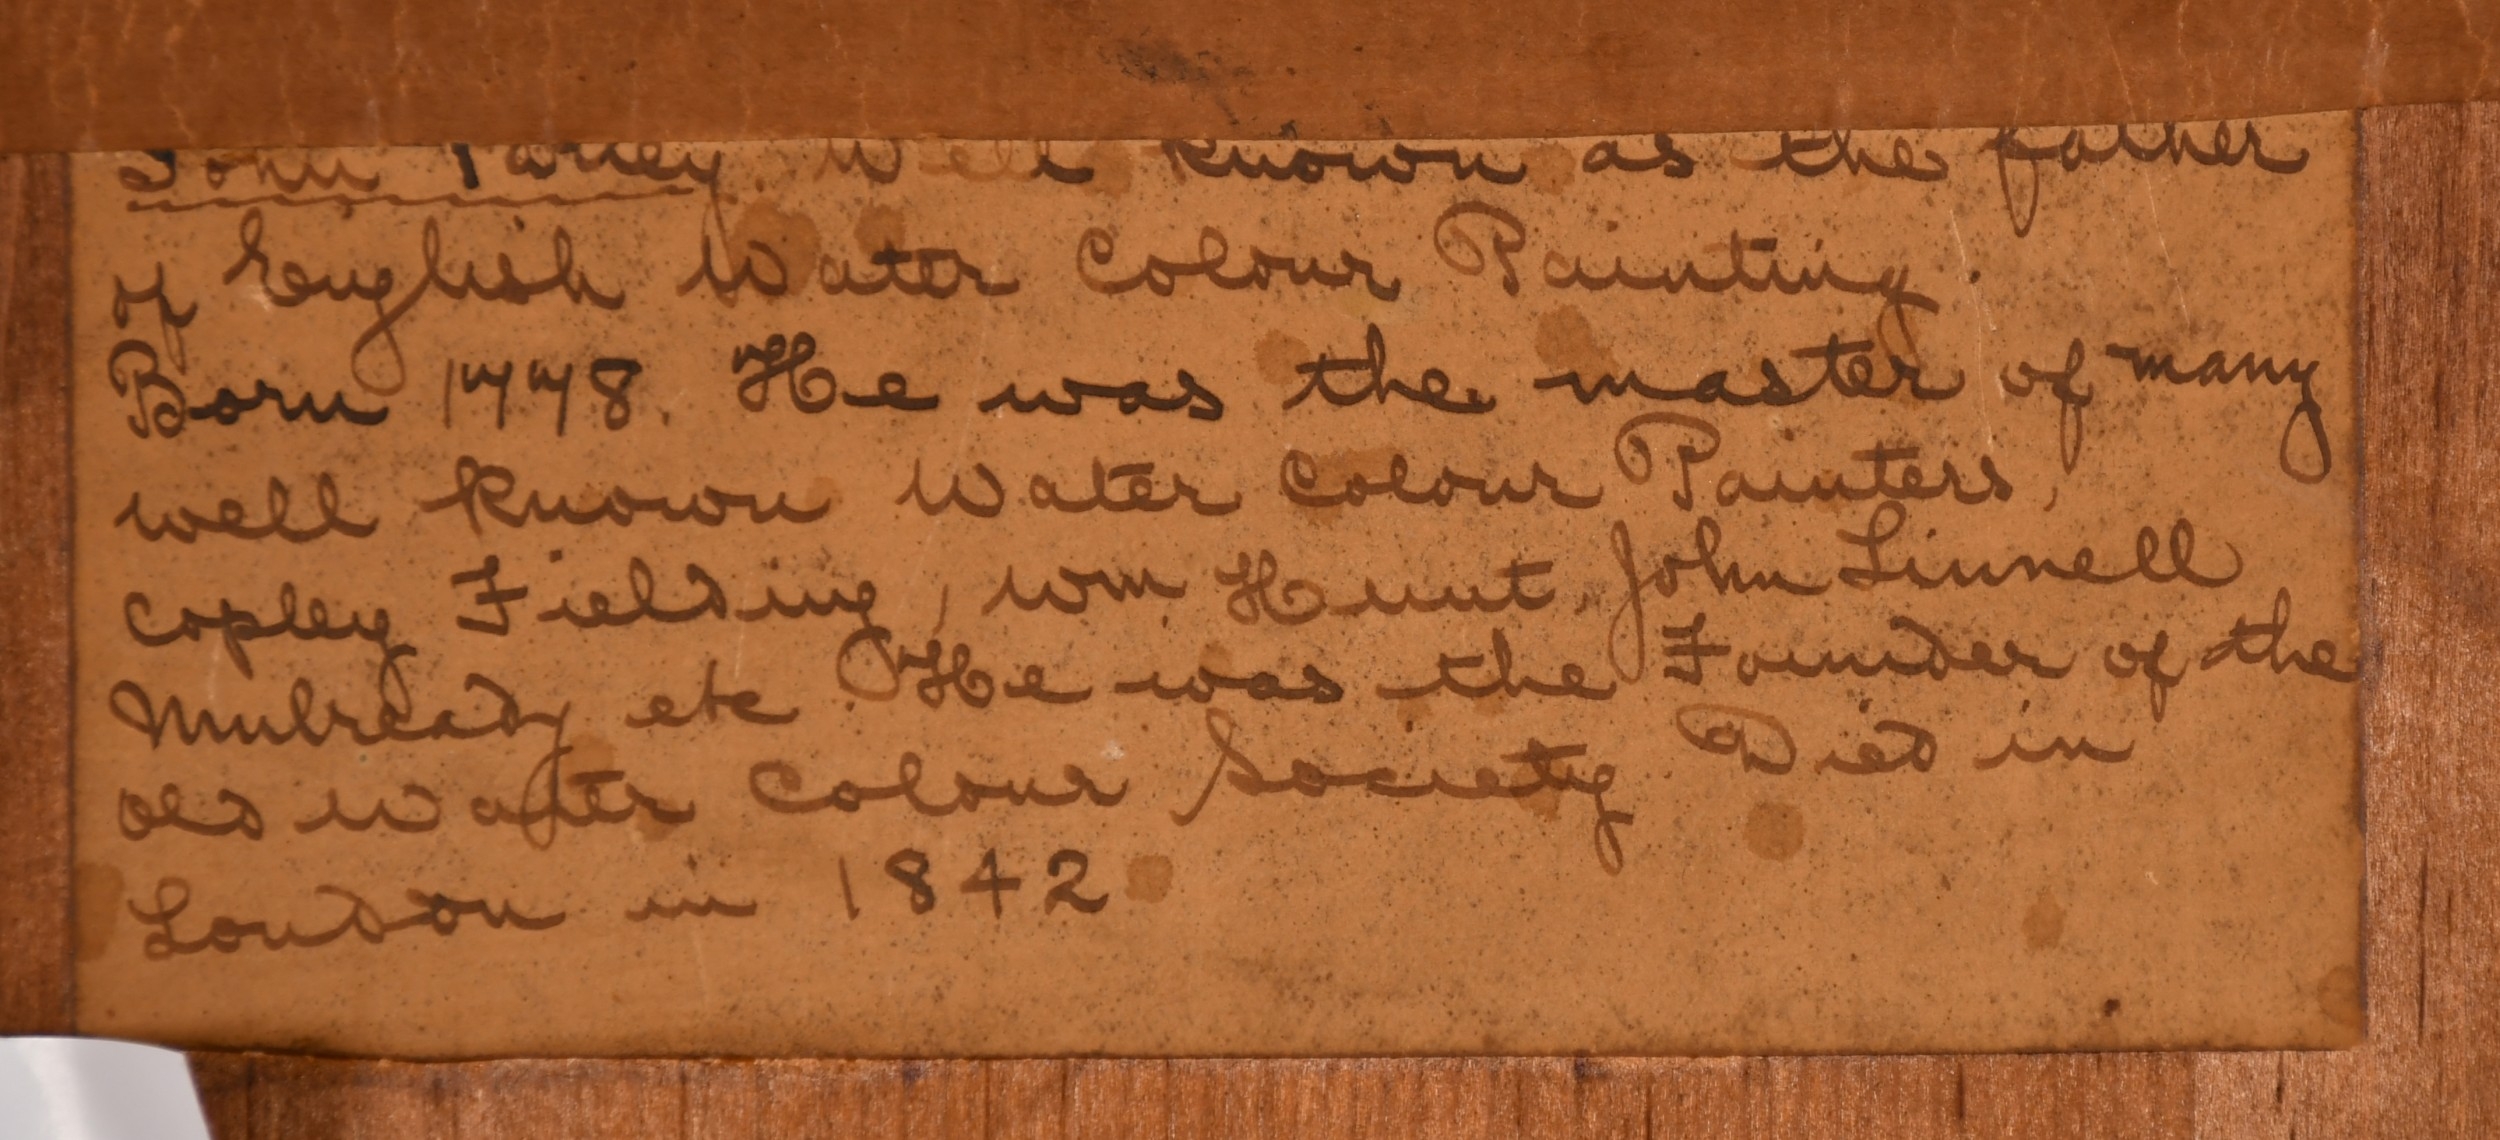 John Varley. Well known as the father
of English Water Colour Painting.
Born 1778. He was the master of many
well known Water Colour Painters,
Copley Fielding, Wm Hunt, John Linnell
Mulready etc. He was the Founder of the
old Water Colour Society Died in
London in 1842